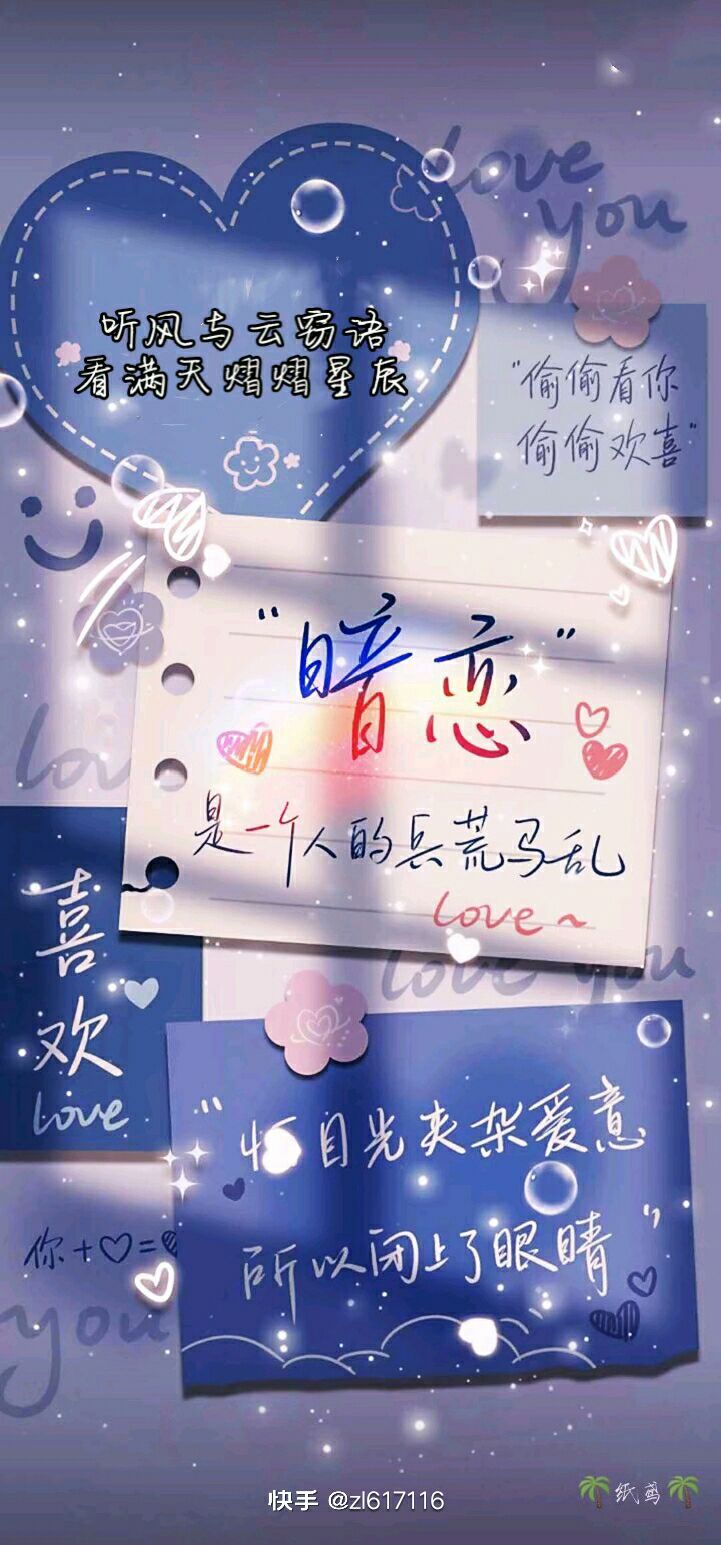 love
you
听风与云窃语
看满天熠熠星辰
"偷偷看你
偷偷欢喜"
"暗恋"
是一个人的兵荒马乱
love~
love
love you
喜
欢
love
"怕目光夹杂爱意
所以闭上了眼睛"
你+♡=
you
快手 @zl617116
🌴纸鸢🌴